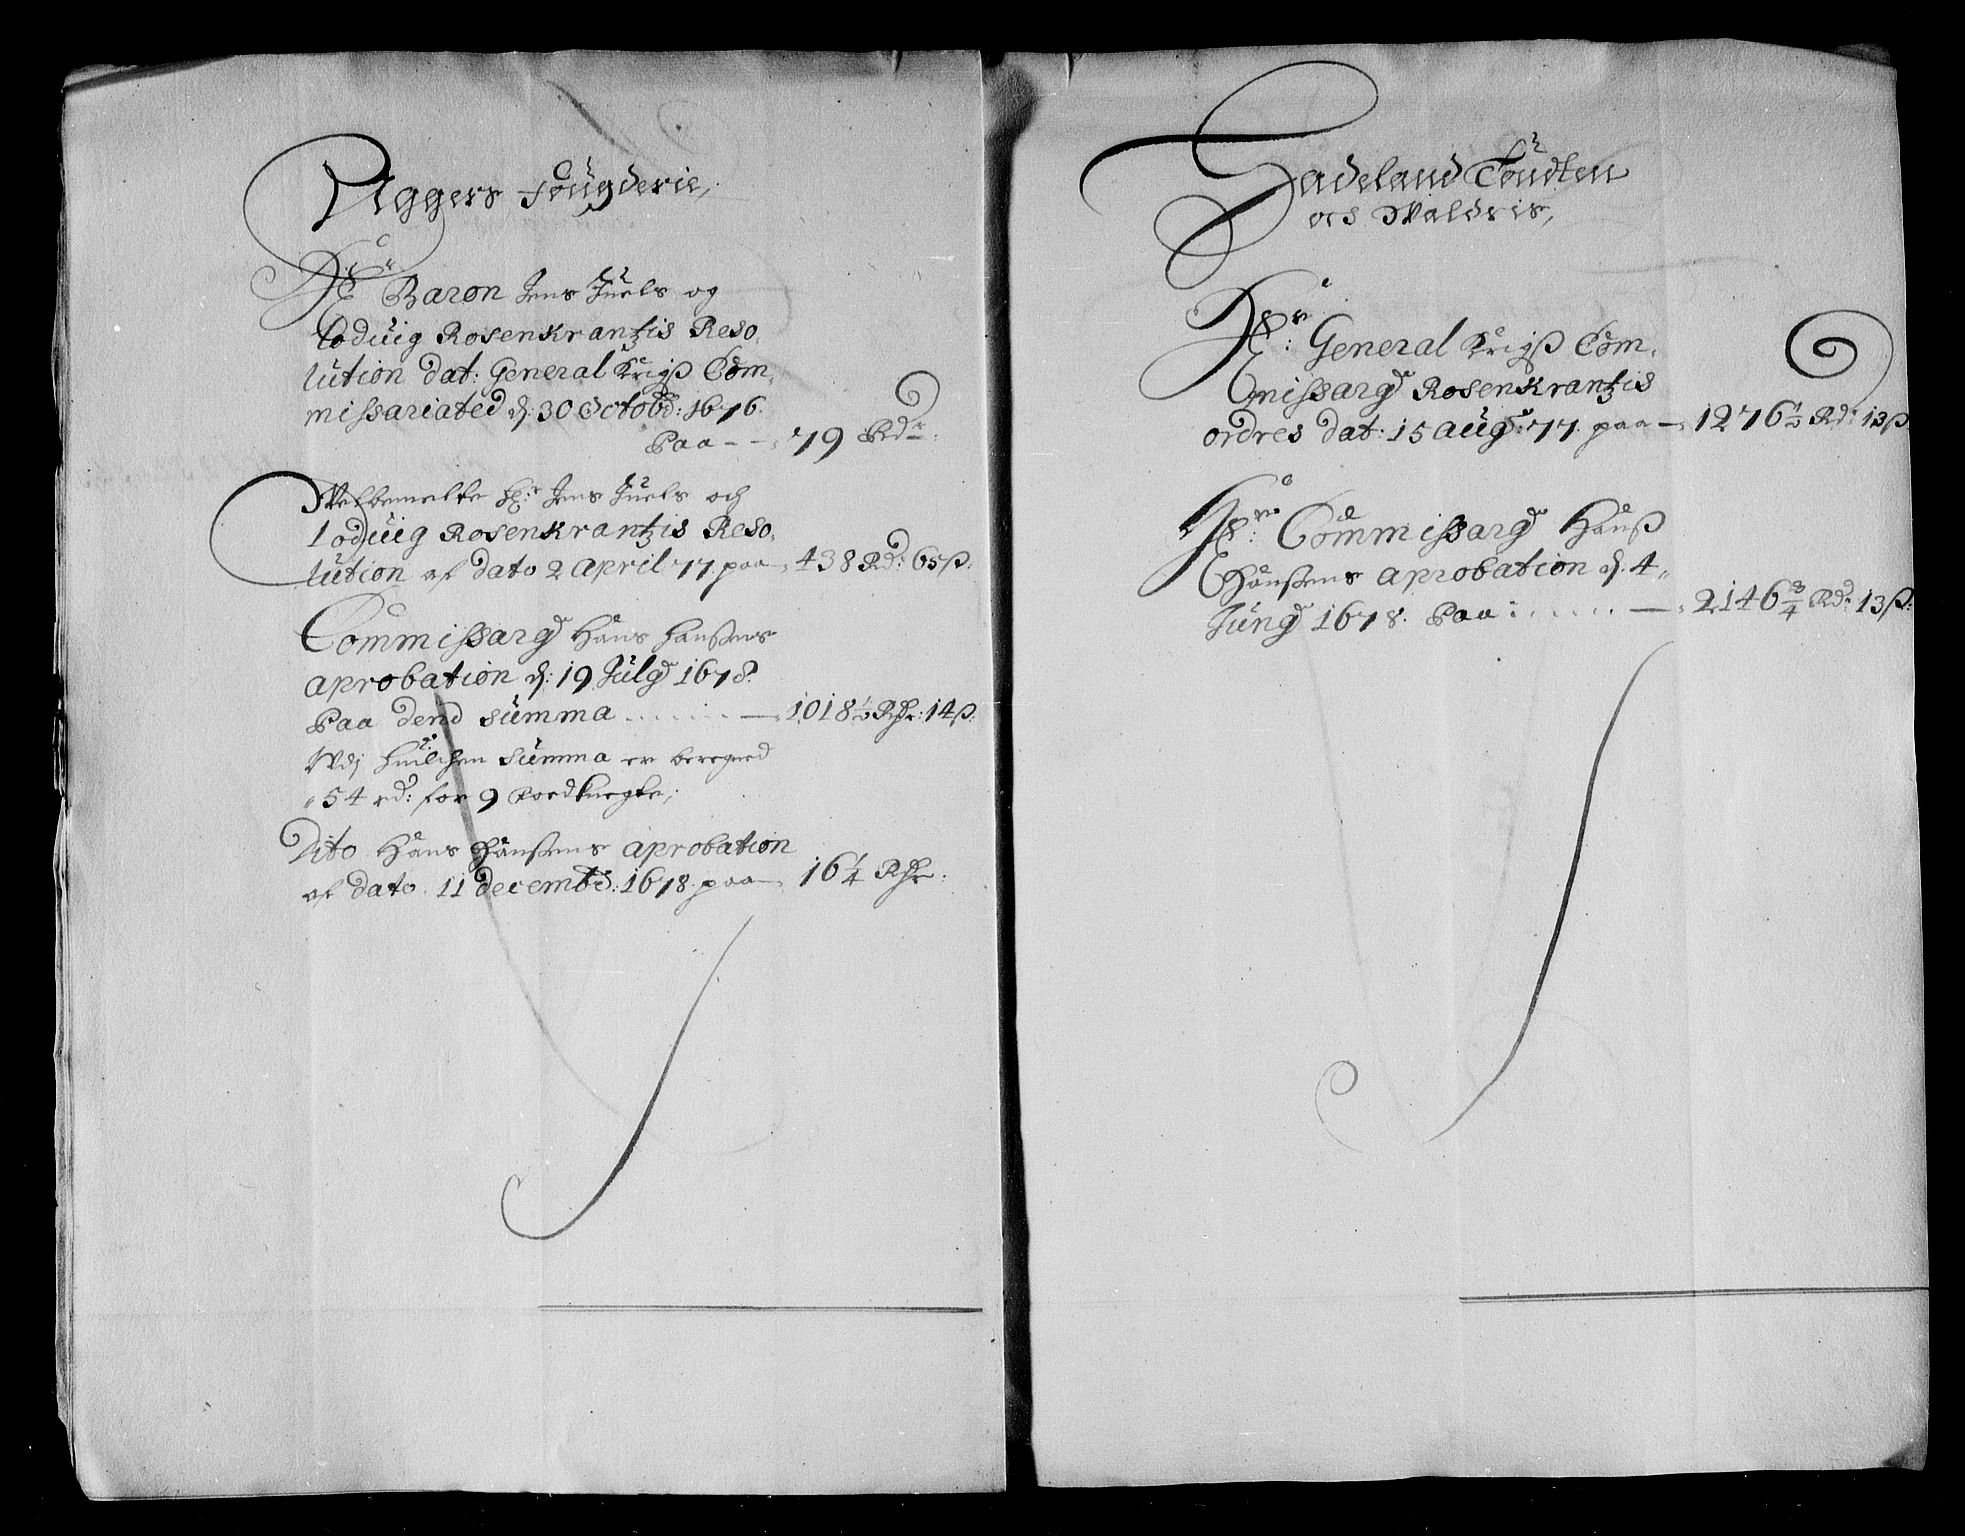 Aggers fougderie,
Hr Baron Jens Juels og
Lodvig Rosenkrantzis Reso,
lution dat: General Krigß Com,
missariated d: 30 Octobr: 1676.
Paa - - 79 Rdr:
Velbemelte Hr: Jens Juels och
Lodvig Rosenkrantzis Reso,
lution af dato 2 April 77. paa 438 Rd: 65 ß:
Commissary Hans Hanßens
aprobation d: 19 July 1678.
Paa dend summa ...... — 1018 1/3 Rdr: 14 ß:
Udj huilchen summa er beregned
54 rd: for 9 Roedknegte,
Dito Hans Hanßens aprobation
af dato 11 decembr: 1678. paa 16 1/4 Rdr:
Hadeland Toudten
och Valdris,
Hr: General Krigß Com,
missary Rosenkrantzis
ordres dat: 15 aug: 77. paa — 1276 1/3 Rd: 13 ß
Hr: Commissary Hanß
Hanßens aprobation d. 4
Juny 1678. Paa: ...... — 2146 3/4 Rd: 13 ß: